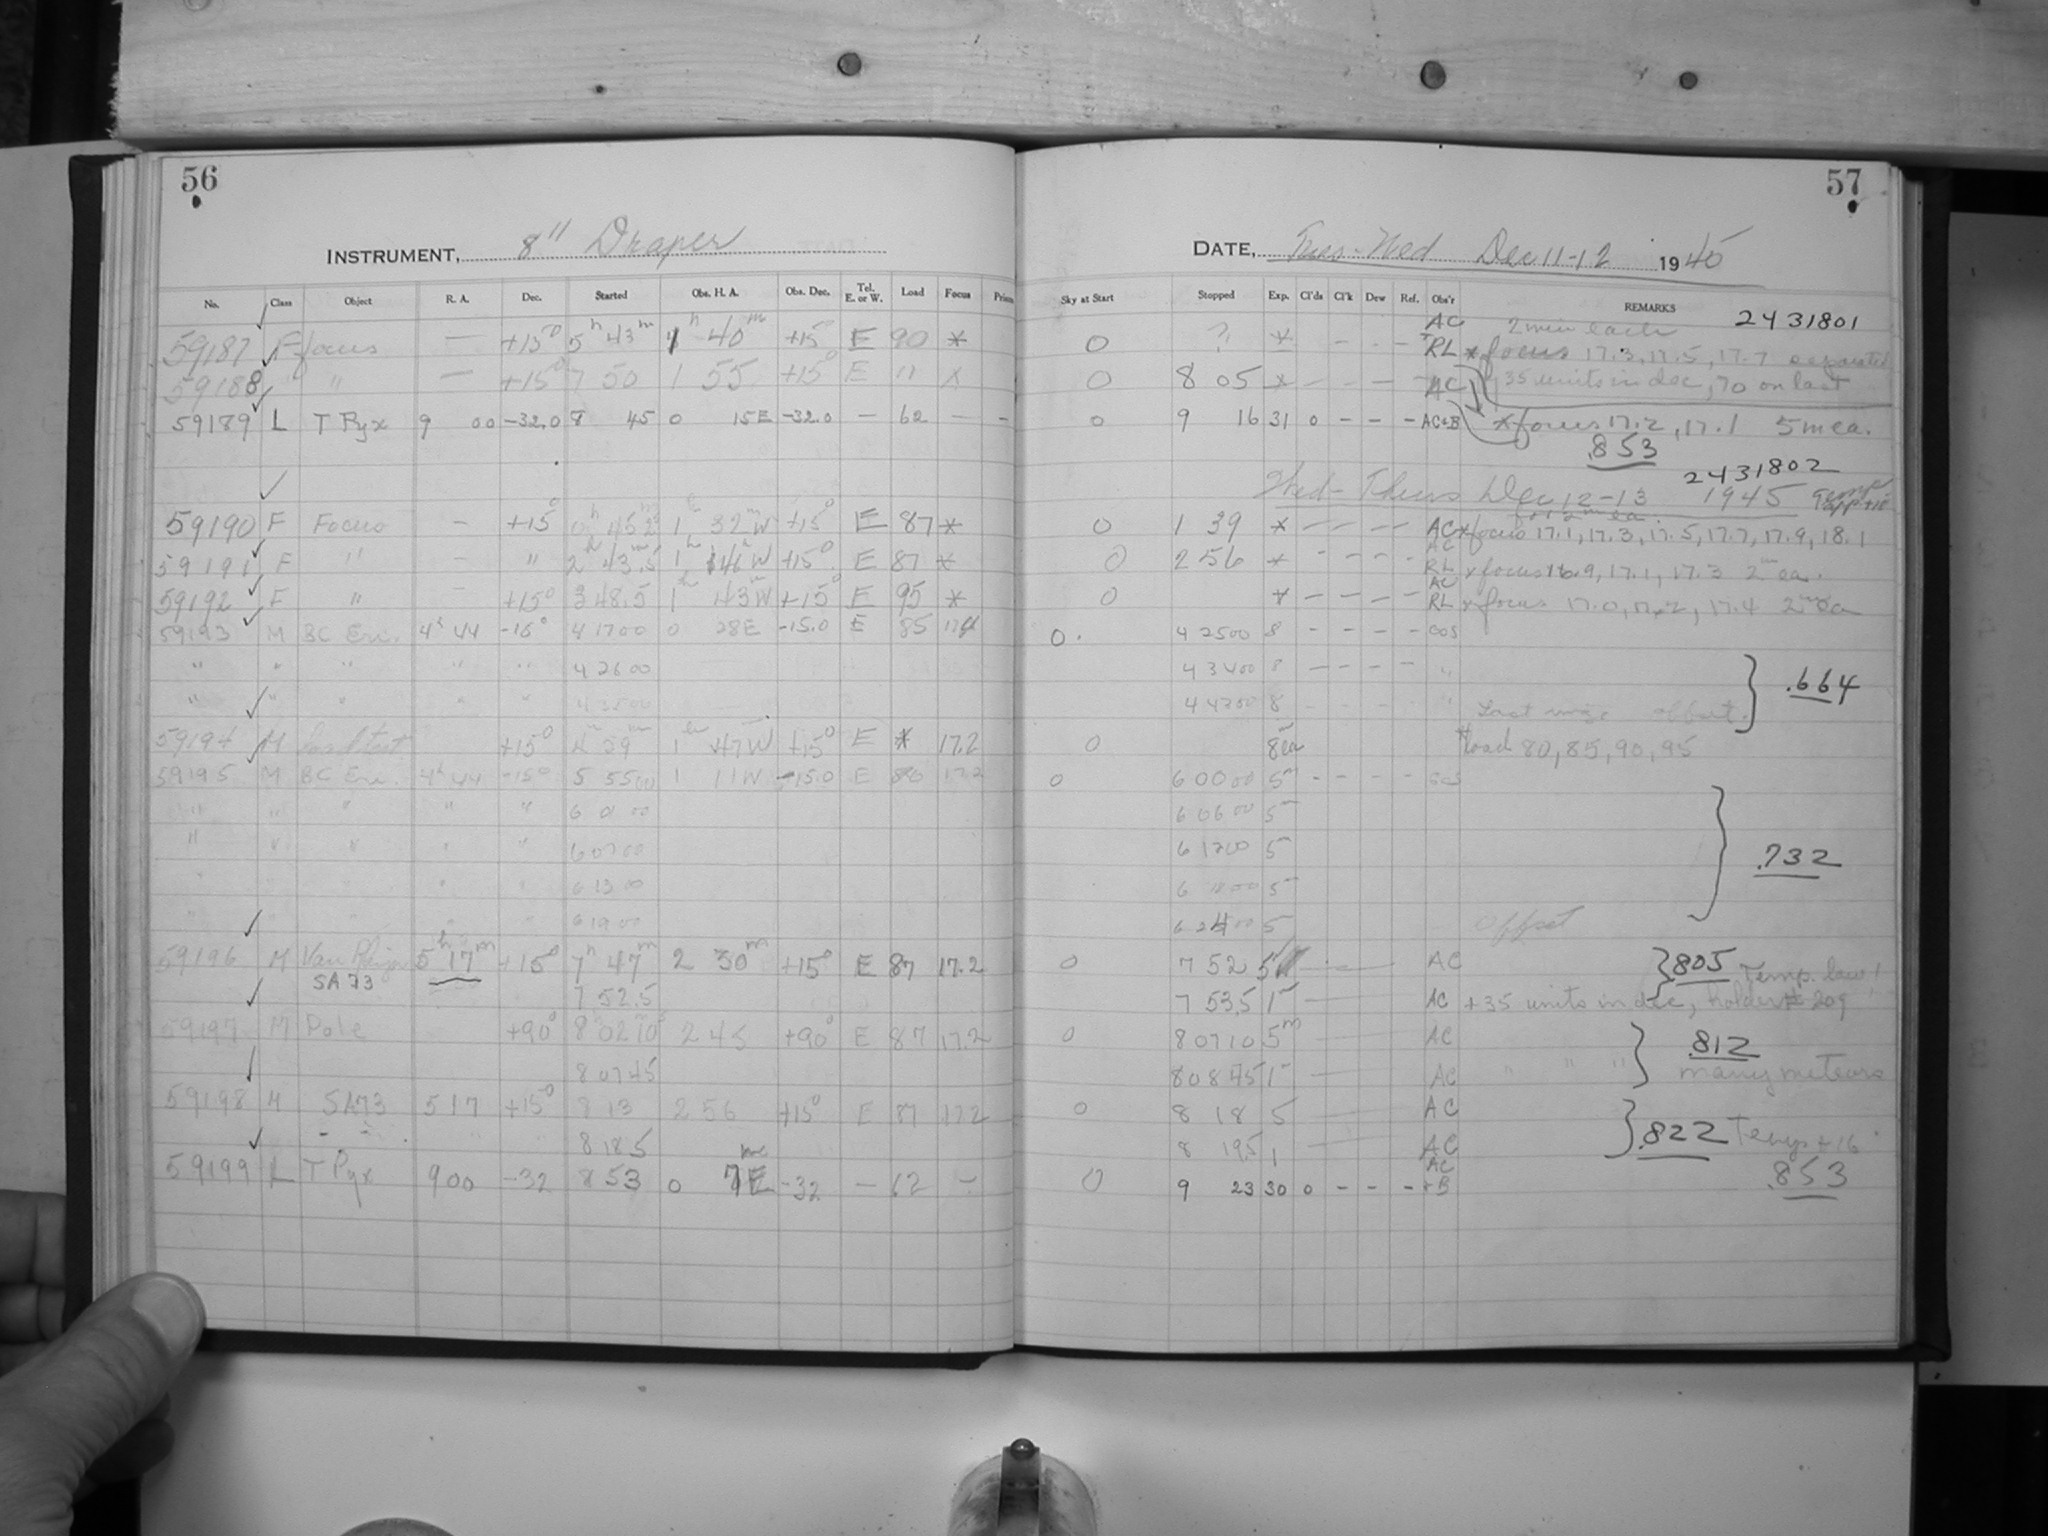 56
57
INSTRUMENT, 8" Draper
DATE, Tues-Wed Dec 11-12 1945
No. Class Object R. A. Dec. Started Obs. H. A. Obs. Dec. Tel. E. or W. Load Focus Prism Sky at Start Stopped Exp. Cl'ds Cl'k Dew Ref. Obs'r REMARKS
2431801
59187 F focus — +15° 5h 43m 1h 40m +15 E 90 * 0 ? * - - - AC RL 2 min each *focus 17.3, 17.5, 17.7 separated
59188 " " — +15° 7 50 1 55 +15° E " x 0 8 05 * — — — AC 35 units in dec, 70 on last
59189 L T Pyx 9 00 -32.0 8 45 0 15E -32.0 — 62 — - 0 9 16 31 0 - - - AC+B *focus 17.2, 17.1 5m ea.
.853
2431802
Wed-Thurs Dec 12-13 1945 Temp
59190 F Focus - +15° 1h 32m W +15° E 87 * 0 1 39 * - - - - AC *focus 17.1, 17.3, 17.5, 17.7, 17.9, 18.1
59191 F " - " 2h 43m.5 1h 46m W +15° E 87 * 0 2 56 * - - - - AC RL *focus 16.9, 17.1, 17.3 2m ea.
59192 F " - +15° 3 48.5 1h 43m W +15° E 95 * 0 * - - - - AC RL *focus 17.0, 17.2, 17.4 2m ea
59193 M BC Eri. 4h 44 -15° 4 17 00 0 28E -15.0 E 85 0 4 25 00 8 - - - -
" " " " " 4 26 00 4 34 00 8 - - - - "
" " " " " 4 35 00 8 - - - - " Last image offset. } .664
59194 M +15° 4h 59m 1h 47W +15° E * 17.2 0 8m ea *Load 80, 85, 90, 95
59195 M BC Eri. 4h 44 -15° 5 55 00 1 11W -15.0 E 17.2 0 6 00 00 5m - - - -
" " " " " 6 01 00 6 06 00 5
" " " " " 6 07 00 6 12 00 5 } .732
" " " " " 6 13 00 5
" " " " " 6 19 00 6 24 00 5 offset
59196 M SA 73 5h 17m +15° 7h 47m 2 30m +15° E 87 17.2 0 7 52 5 AC } .805
7 52.5 7 53.5 1 AC +35 units in dec, holder # 209
59197 M Pole +90° 8 02 10 2 45 +90° E 87 17.2 0 8 07 10 5m AC } .812
8 07 45 8 08 45 1 AC " " " many meteors
59198 M SA73 5 17 +15° 8 13 2 56 +15° E 87 17.2 0 8 18 5 AC } .822
8 18.5 8 19.5 1 AC Temp +16
59199 L T Pyx 9 00 -32 8 53 0 7E -32 — 62 - 0 9 23 30 0 - - - AC +B .853